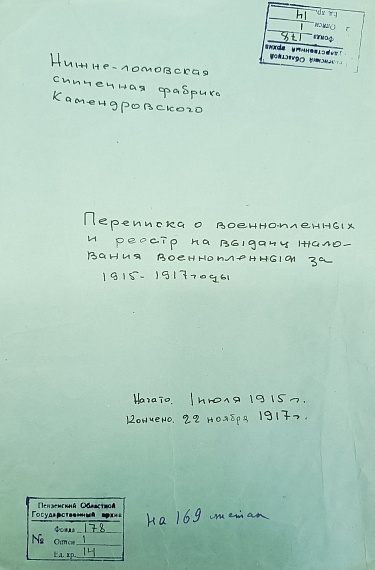 Пензенский Областной
Государственный архив
Фонд 178
Описи 1
Ед. хр. 14
Нижне-ломовская
спичечная фабрика
Камендровского
Переписка о военнопленных
и реестр на выдачу жало-
вания военнопленным за
1915-1917 годы
Начато. 1 июля 1915 г.
Кончено. 22 ноября 1917 г.
Пензенский Областной
Государственный архив
Фонда 178
№ Описи 1
Ед. хр. 14
на 169 листах